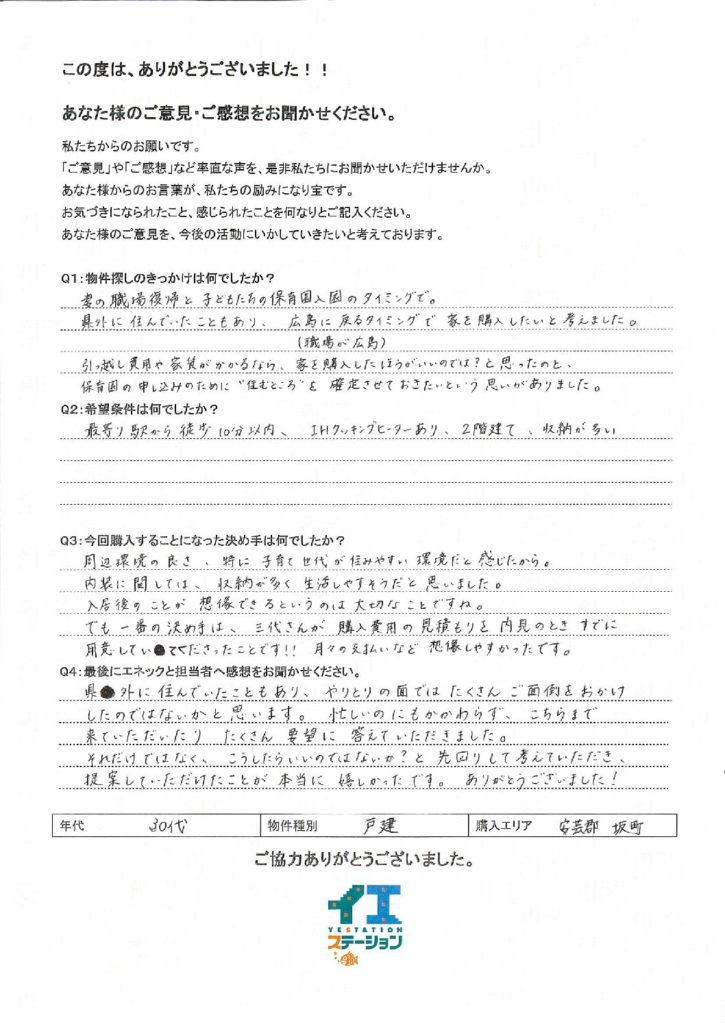 この度は、ありがとうございました！！
あなた様のご意見・ご感想をお聞かせください。
私たちからのお願いです。
「ご意見」や「ご感想」など率直な声を、是非私たちにお聞かせいただけませんか。
あなた様からのお言葉が、私たちの励みになり宝です。
お気づきになられたこと、感じられたことを何なりとご記入ください。
あなた様のご意見を、今後の活動にいかしていきたいと考えております。
Q1：物件探しのきっかけは何でしたか？
妻の職場復帰と子どもたちの保育園入園のタイミングで。
県外に住んでいたこともあり、広島に戻るタイミングで家を購入したいと考えました。
(職場が広島)
引っ越し費用や家賃がかかるなら、家を購入したほうがいいのでは？と思ったのと、
保育園の申し込みのために"住むところ"を確定させておきたいという思いがありました。
Q2：希望条件は何でしたか？
最寄り駅から徒歩10分以内、IHクッキングヒーターあり、2階建て、収納が多い
Q3：今回購入することになった決め手は何でしたか？
周辺環境の良さ、特に子育て世代が住みやすい環境だと感じたから。
内装に関しては、収納が多く生活しやすそうだと思いました。
入居後のことが想像できるというのは大切なことですね。
でも一番の決め手は、三代さんが購入費用の見積もりを内見のときすでに
用意してくださったことです!! 月々の支払いなど想像しやすかったです。
Q4：最後にエネックと担当者へ感想をお聞かせください。
県外に住んでいたこともあり、やりとりの面ではたくさんご面倒をおかけ
したのではないかと思います。忙しいのにもかかわらず、こちらまで
来ていただいたりたくさん要望に答えていただきました。
それだけではなく、こうしたらいいのではないか？と先回りして考えていただき、
提案していただけたことが本当に嬉しかったです。ありがとうございました！
年代 30代 物件種別 戸建 購入エリア 安芸郡 坂町
ご協力ありがとうございました。
イエ
YESTATION
ステーション